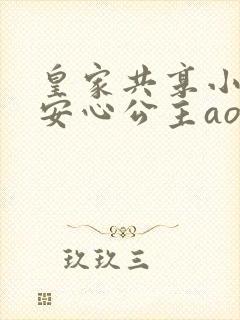 皇家共享小
安心公主ao
玖玖三